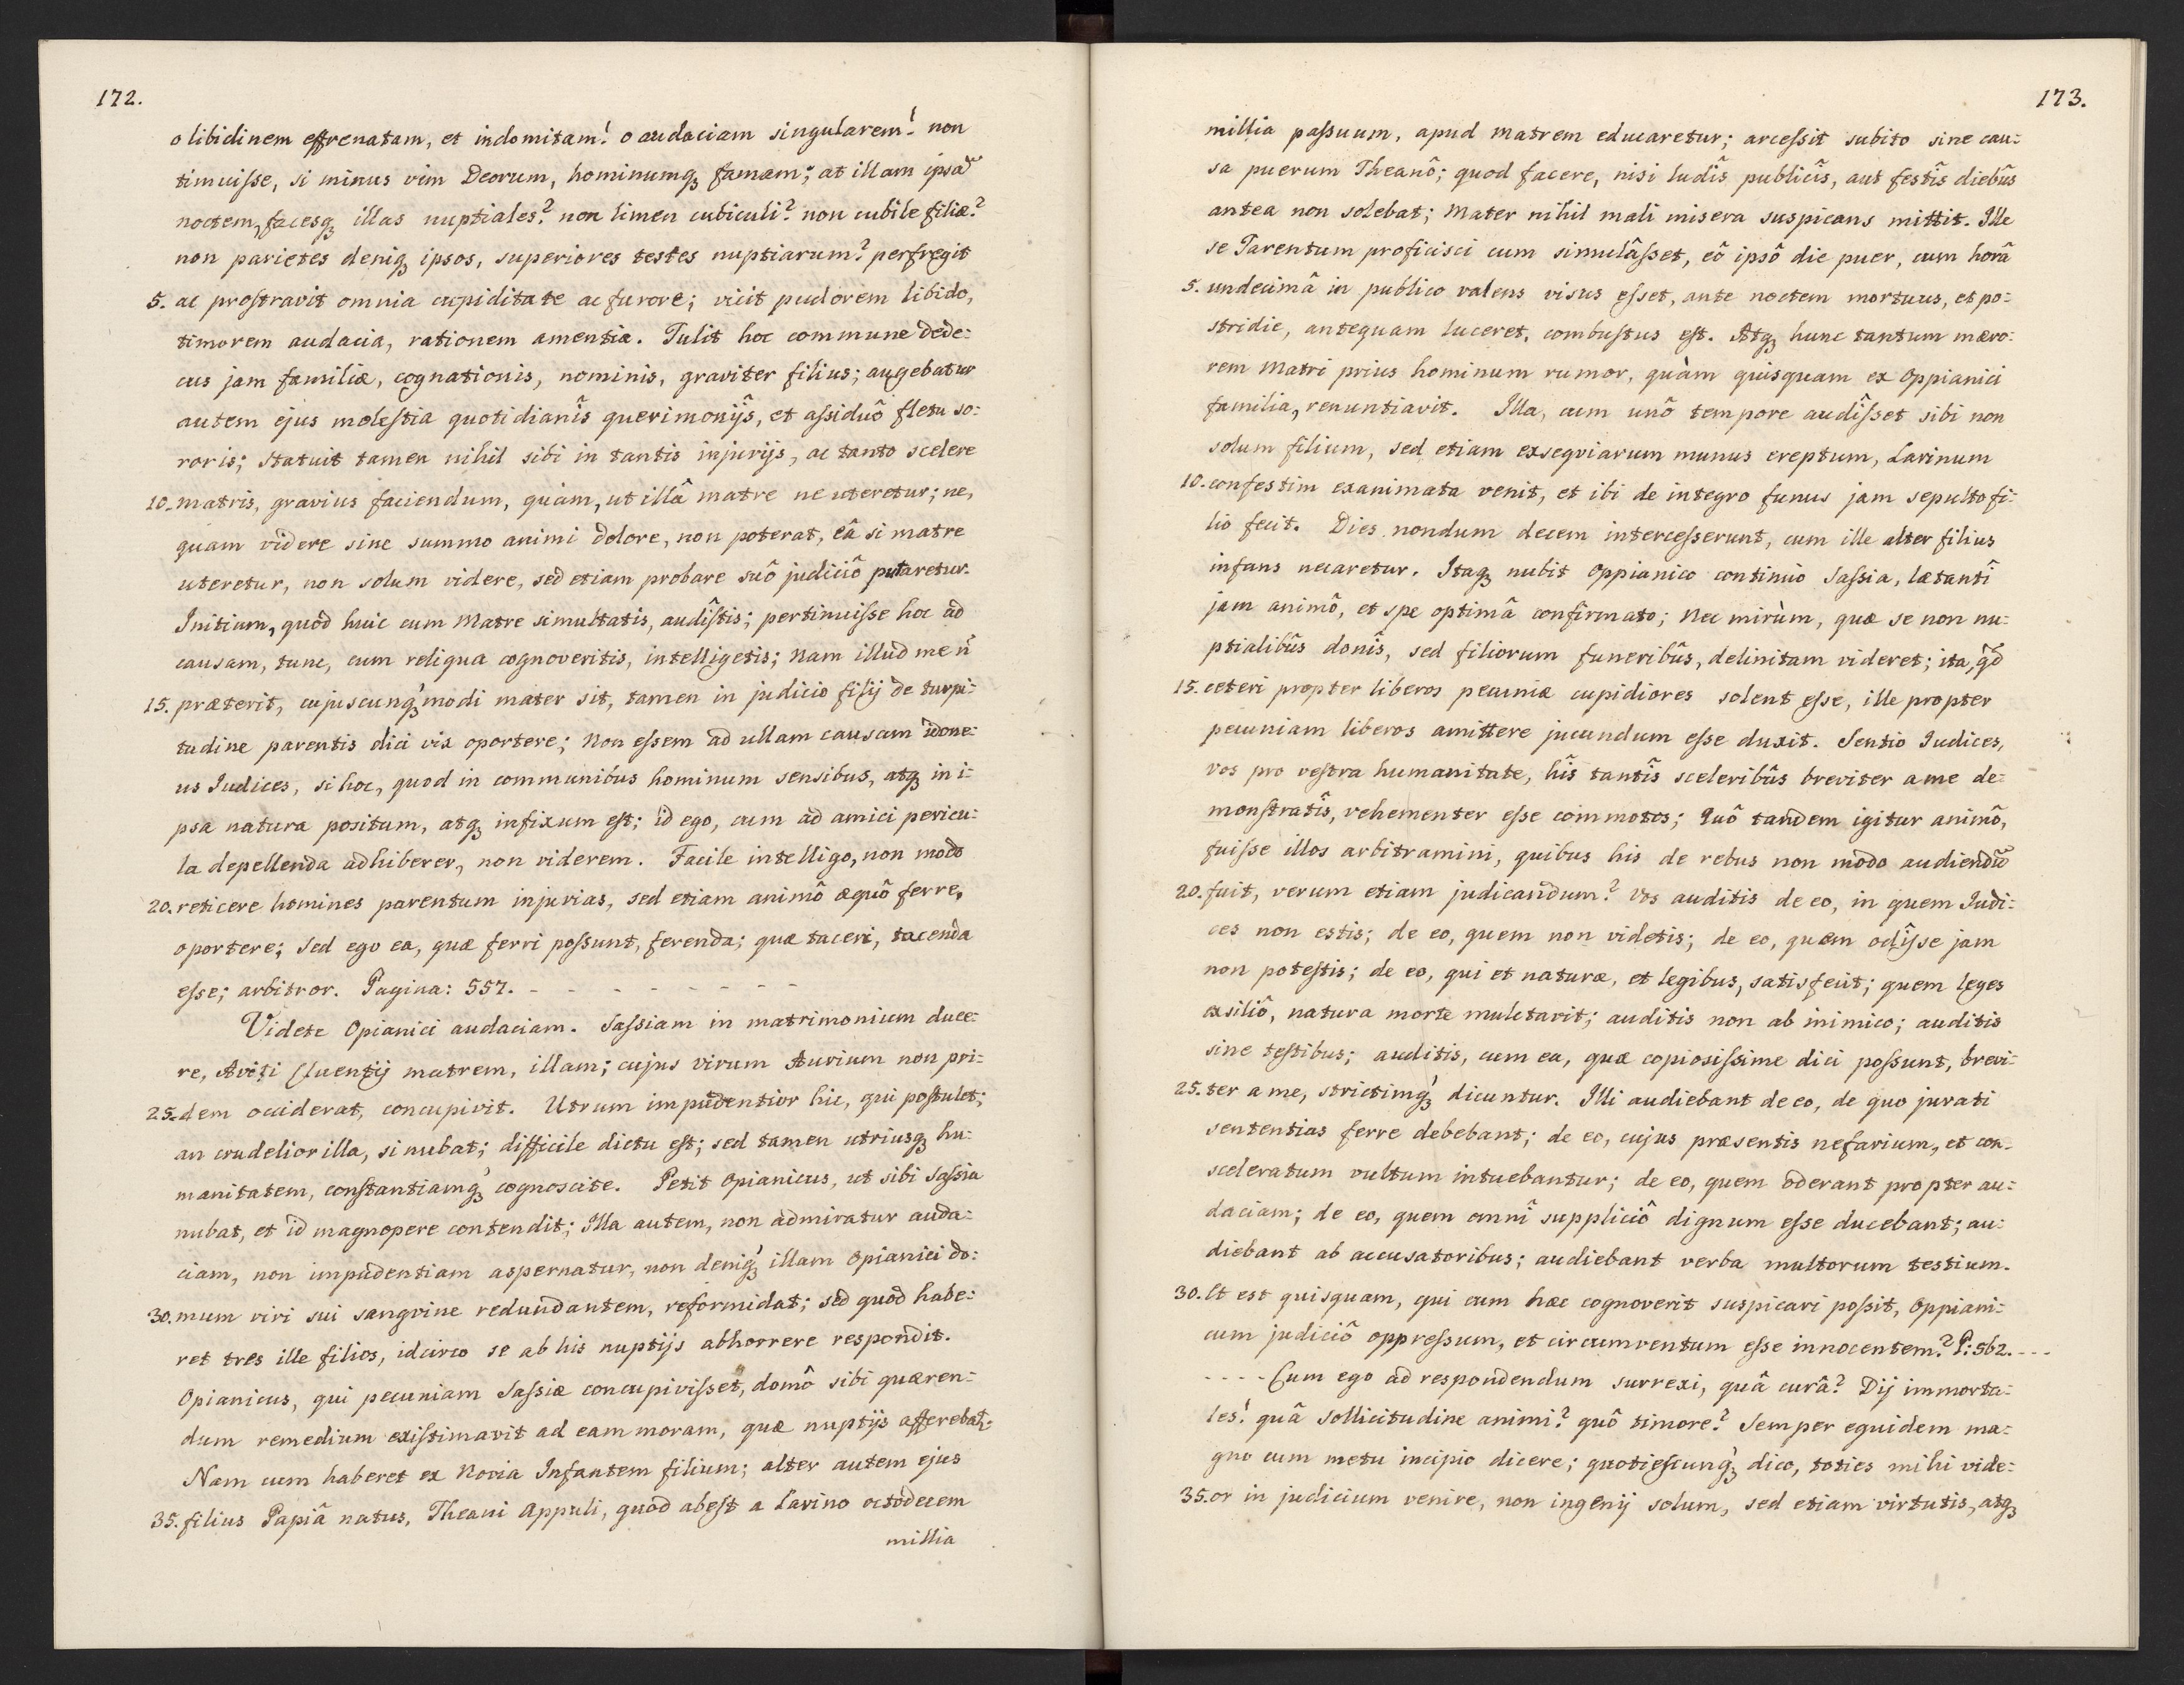 172.
o libidinem effrenatam, et indomitam! o audaciam singularem! non
timuiſse, si minus vim Deorum, hominumq₃ famam; at illam ipsã
noctem, facesq₃ illas nuptiales? non limen cubiculi? non cubile filiæ?
non parietes deniq₃ ipsos, superiores testes nuptiarum? perfregit
5. ac proſtravit omnia cupiditate ac furore; vicit pudorem libido,
timorem audacia, rationem amentia. Tulit hoc commune dede:
cus jam familiæ, cognationis, nominis, graviter filius; augebatur
autem ejus moleſtia quotidianîs querimonijs, et aſsiduô fletu so:
roris; statuit tamen nihil sibi in tantis injurijs, ac tanto scelere
10. matris, gravius faciendum, quàm, ut illâ matre ne uteretur; ne,
quam videre sine summo animi dolore, non poterat, eâ si matre
uteretur, non solum videre, sed etiam probare suô judiciô putaretur.
Initium, quod huic cum Matre simultatis, audîſtis; pertinuiſse hoc ad
causam, tunc, cum reliqua cognoveritis, intelligetis; Nam illud me ñ
15. præterit, cujuscunq₃ modi mater sit, tamen in judicio filij de turpi:
tudine parentis dici vix oportere; Non eſsem ad ullam causam idone:
us Iudices, si hoc, quod in communibus hominum sensibus, atq₃ in i:
psa natura positum, atq₃ infixum eſt; id ego, cum ad amici pericu:
la depellenda adhiberer, non viderem. Facile intelligo, non modo
20. reticere homines parentum injurias, sed etiam animô æquô ferre,
oportere; sed ego ea, quæ ferri poſsunt, ferenda; quæ taceri, tacenda
eſse; arbitror. Pagina: 557. - - - - - - - -
Videte Opianici audaciam. Saſsiam in matrimonium duce:
re, Aviti Cluentij matrem, illam; cujus virum Aurium non pri:
25. dem occiderat, concupivit. Utrum impudentior hic, qui poſtulet;
an crudelior illa, si nubat; difficile dictu eſt; sed tamen utriusq₃ hu:
manitatem, conſtantiamq₃ cognoscite. Petit Opianicus, ut sibi Saſsia
nubat, et id magnopere contendit; Illa autem, non admiratur auda:
ciam, non impudentiam aspernatur, non deniq₃ illam Opianici do:
30. mum viri sui sangvine redundantem, reformidat; sed quod habe:
ret tres ille filios, idcirco se ab his nuptijs abhorrere respondit.
Opianicus, qui pecuniam Saſsiæ concupiviſset, domô sibi quæren:
dum remedium exiſtimavit ad eam moram, quæ nuptijs afferebat:
Nam cum haberet ex Novia Infantem filium; alter autem ejus
35. filius Papiâ natus, Theani Appuli, quod abeſt a Larino octodecem
millia
173.
millia paſsuum, apud Matrem educaretur; arceſsit subito sine cau:
sa puerum Theanô; quod facere, nisi ludîs publicîs, aut feſtîs diebûs
antea non solebat; Mater nihil mali misera suspicans mittit. Ille
se Tarentum proficisci cum simulâſset, eô ipsô die puer, cum horâ
5. undecimâ in publico valens visus eſset, ante noctem mortuus, et po:
stridie, antequam luceret, combuſtus eſt. Atq₃ hunc tantum mæro:
rem Matri prius hominum rumor, quàm quisquam ex Oppianici
familia, renuntiavit. Illa, cum unô tempore audîſset sibi non
solum filium, sed etiam exseqviarum munus ereptum, Larinum
10. confestim exanimata venit, et ibi de integro funus jam sepulto fi:
lio fecit. Dies nondum decem interceſserunt, cum ille alter filius
infans necaretur. Itaq₃ nubit Oppianico continuò Saſsia, lætantî
jam animô, et spe optimâ confirmato; Nec mirùm, quæ se non nu:
ptialibûs donîs, sed filiorum funeribûs, delinitam videret; ita, q̃d
15. ceteri propter liberos pecuniæ cupidiores solent eſse, ille propter
pecuniam liberos amittere jucundum eſse duxit. Sentio Iudices,
vos pro veſtra humanitate, hîs tantîs sceleribûs breviter a me de:
monſtratîs, vehementer eſse commotos; Quô tandem igitur animô,
fuiſse illos arbitramini, quibus his de rebus non modo audiendũ
20. fuit, verum etiam judicandum? Vos auditis de eo, in quem Iudi:
ces non estis; de eo, quem non videtis; de eo, quem odîſse jam
non poteſtis; de eo, qui et naturæ, et legibus, satisfecit; quem leges
exsiliô, natura morte mulctavit; auditis non ab inimico; auditis
sine teſtibus; auditis, cum ea, quæ copiosiſsime dici poſsunt, brevi:
25. ter a me, strictimq₃ dicuntur. Illi audiebant de eo, de quo jurati
sententias ferre debebant; de eo, cujus præsentis nefarium, et con:
sceleratum vultum intuebantur; de eo, quem oderant propter au:
daciam; de eo, quem omnî suppliciô dignum eſse ducebant; au:
diebant ab accusatoribus; audiebant verba multorum testium.
30. Et est quisquam, qui cum hæc cognoverit suspicari poſsit, Oppiani:
cum judiciô oppreſsum, et circumventum eſse innocentem? P: 562. - - -
- - - - Cum ego ad respondendum surrexi, quâ curâ? Dij immorta:
les! quâ sollicitudine animi? quô timore? Semper equidem ma:
gno cum metu incipio dicere; quotieſcunq₃ dico, toties mihi vide:
35. or in judicium venire, non ingenij solum, sed etiam virtutis, atq₃